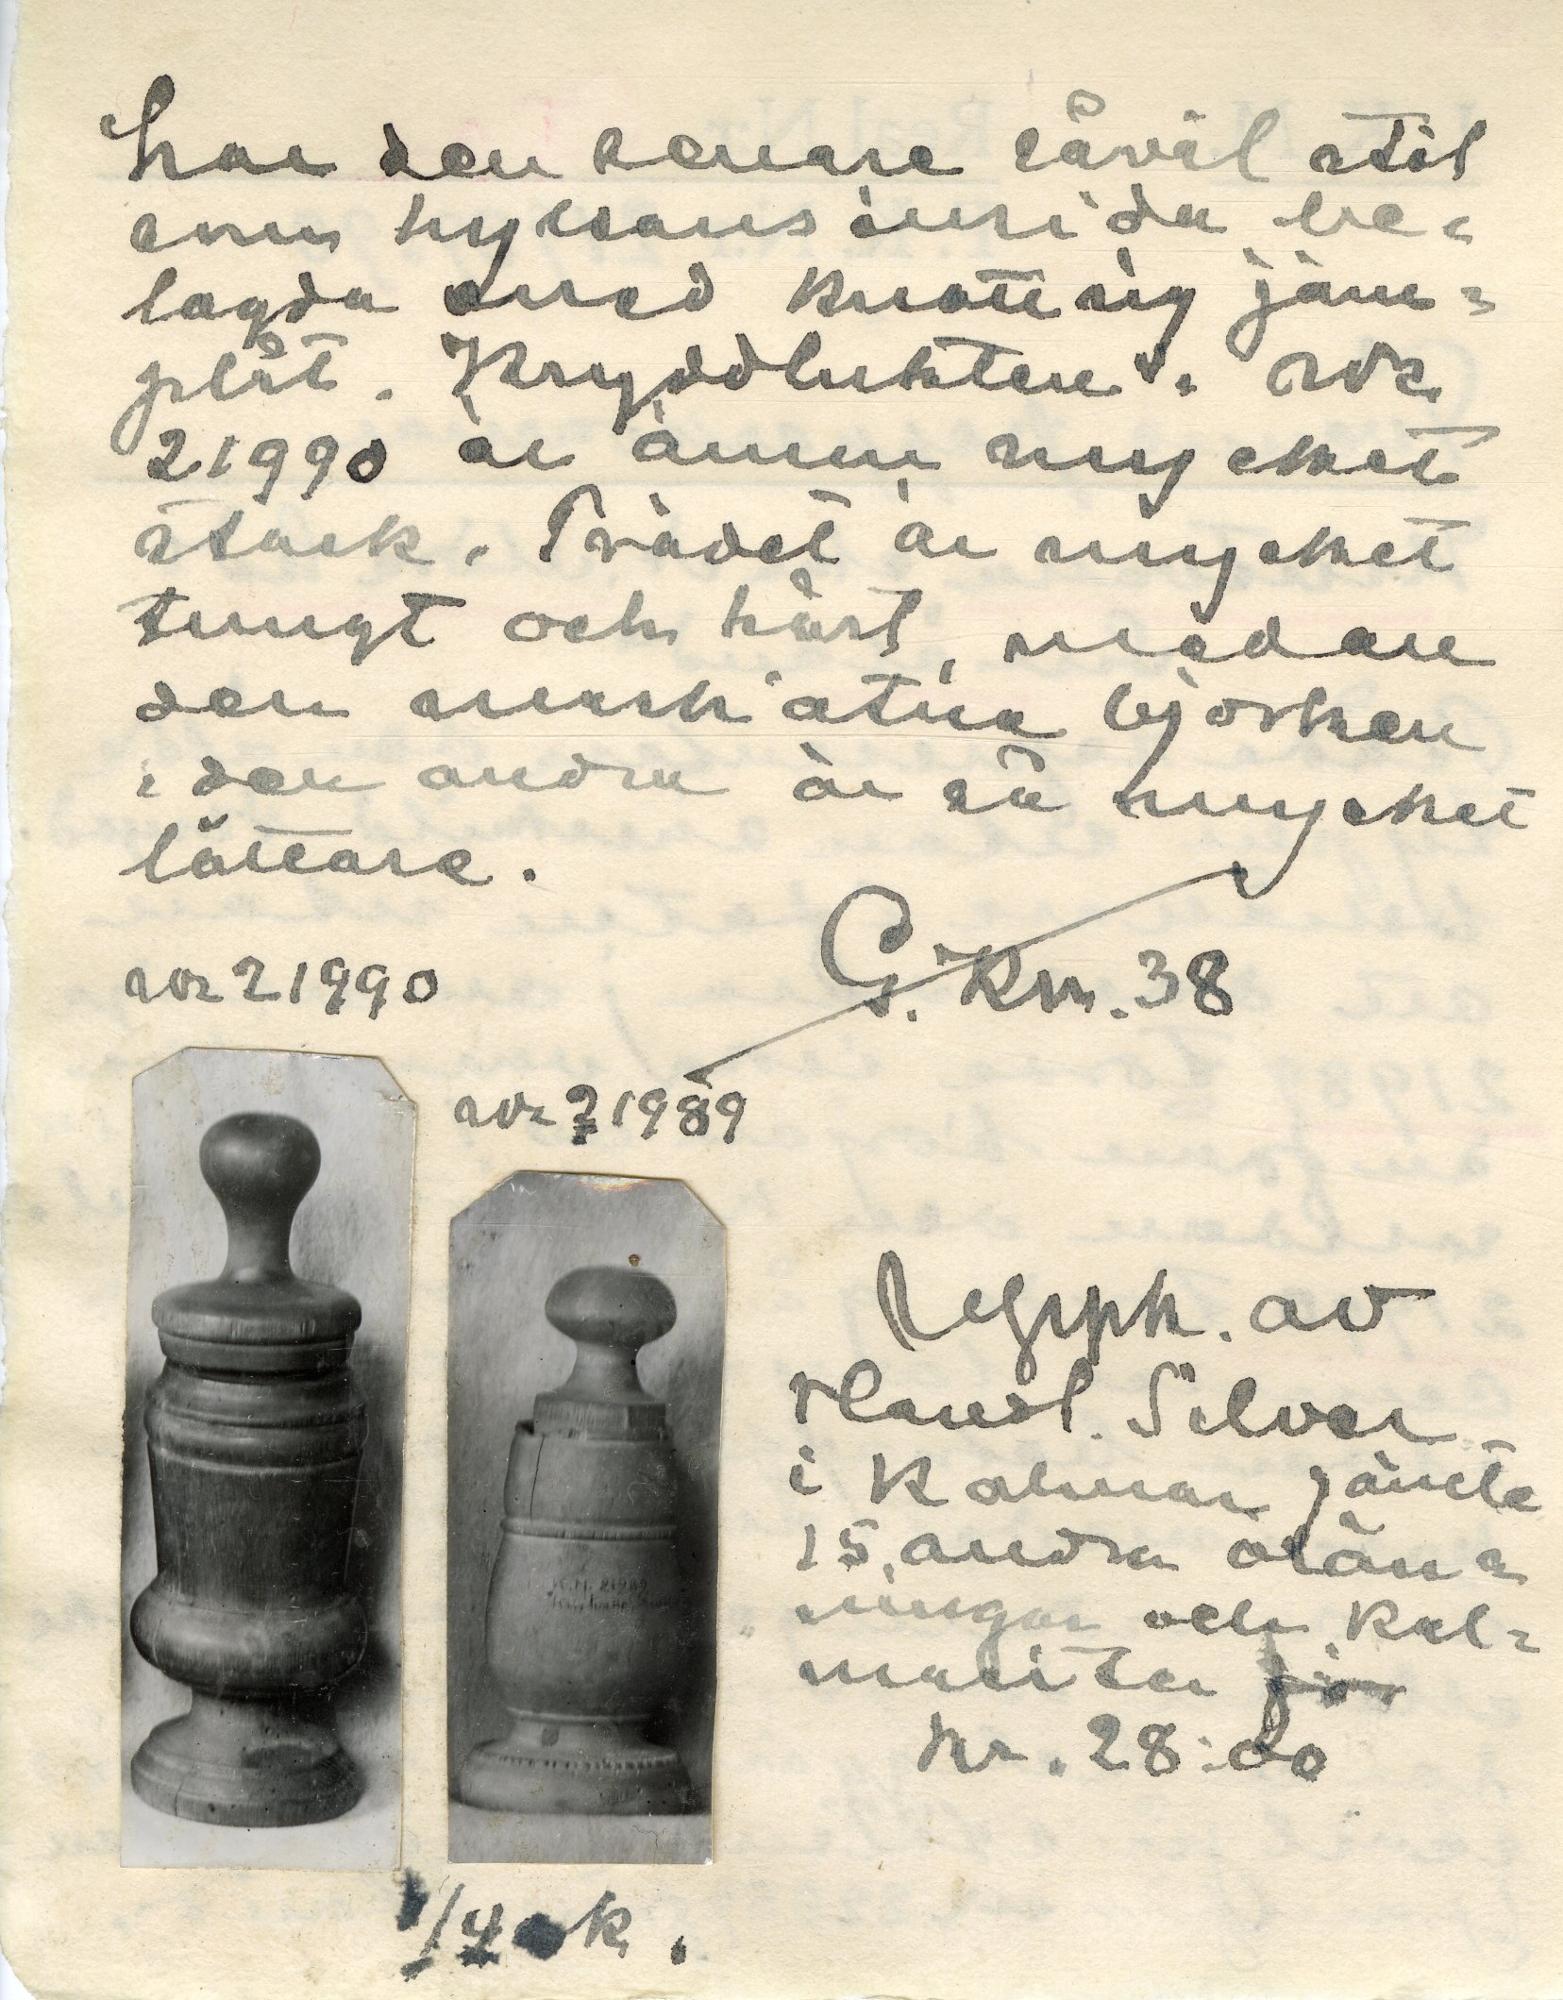 har den senare såväl stöt
som hylsans insida be=
lagda med knottrig järn=
plåt. Kryddlukten i nr
21990 är ännu mycket
stark. Trädet är mycket
tungt och hårt, medan
den mask'ätna björken
i den andra är så mycket
lättare.
nr 21990
G. Km. 38
nr 21989
Uppk. av
Handl. Silver
i Kalmar jämte
15 andra ölän=
ningar och kal=
mariter för
kr. 28:00
1/4 k.